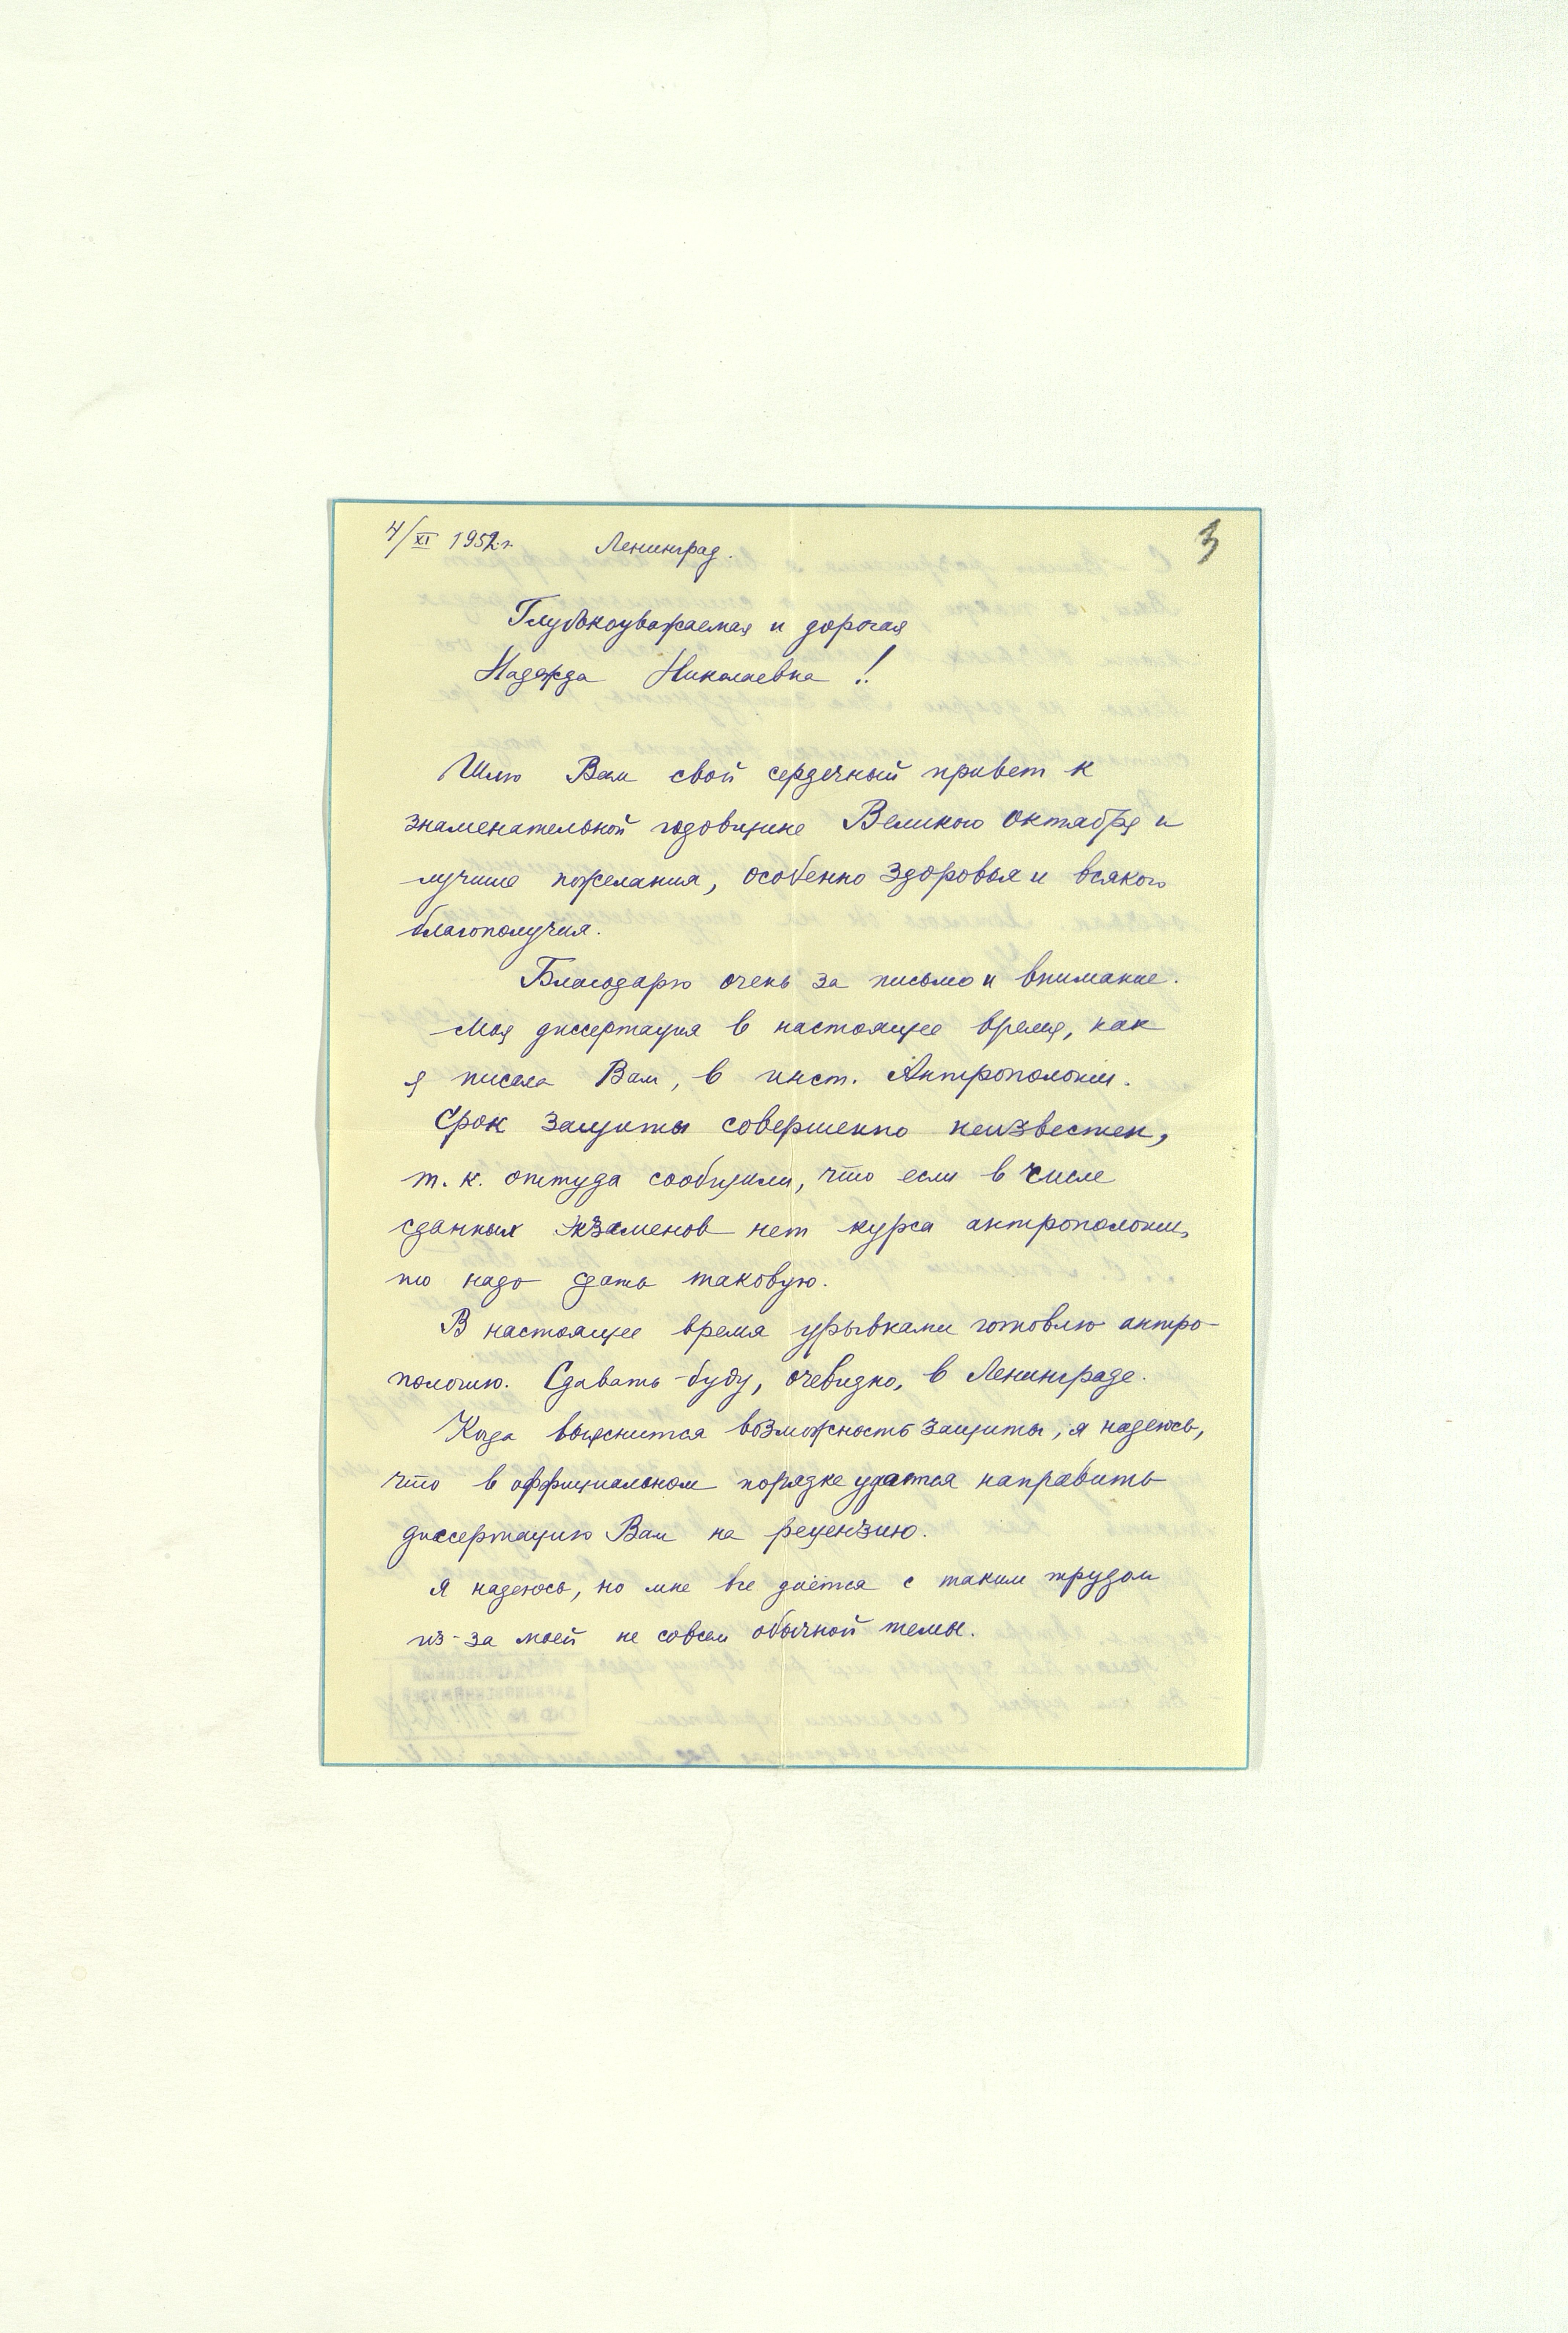 4/XI 1952 г. Ленинград. 3
Глубокоуважаемая и дорогая
Надежда Николаевна!
Шлю Вам свой сердечный привет к
знаменательной годовщине Великого Октября и
лучшие пожелания, особенно здоровья и всякого
благополучия.
Благодарю очень за письмо и внимание.
Моя диссертация в настоящее время, как
я писала Вам, в инст. Антропологии.
Срок защиты совершенно неизвестен,
т. к. оттуда сообщили, что если в числе
сданных экзаменов нет курса антропологии,
то надо сдать таковую.
В настоящее время урывками готовлю антро-
пологию. Сдавать буду, очевидно, в Ленинграде.
Когда выяснится возможность защиты, я надеюсь,
что в оффициальном порядке удастся направить
диссертацию Вам на рецензию.
Я надеюсь, но мне все даётся с таким трудом
из-за моей не совсем обычной темы.